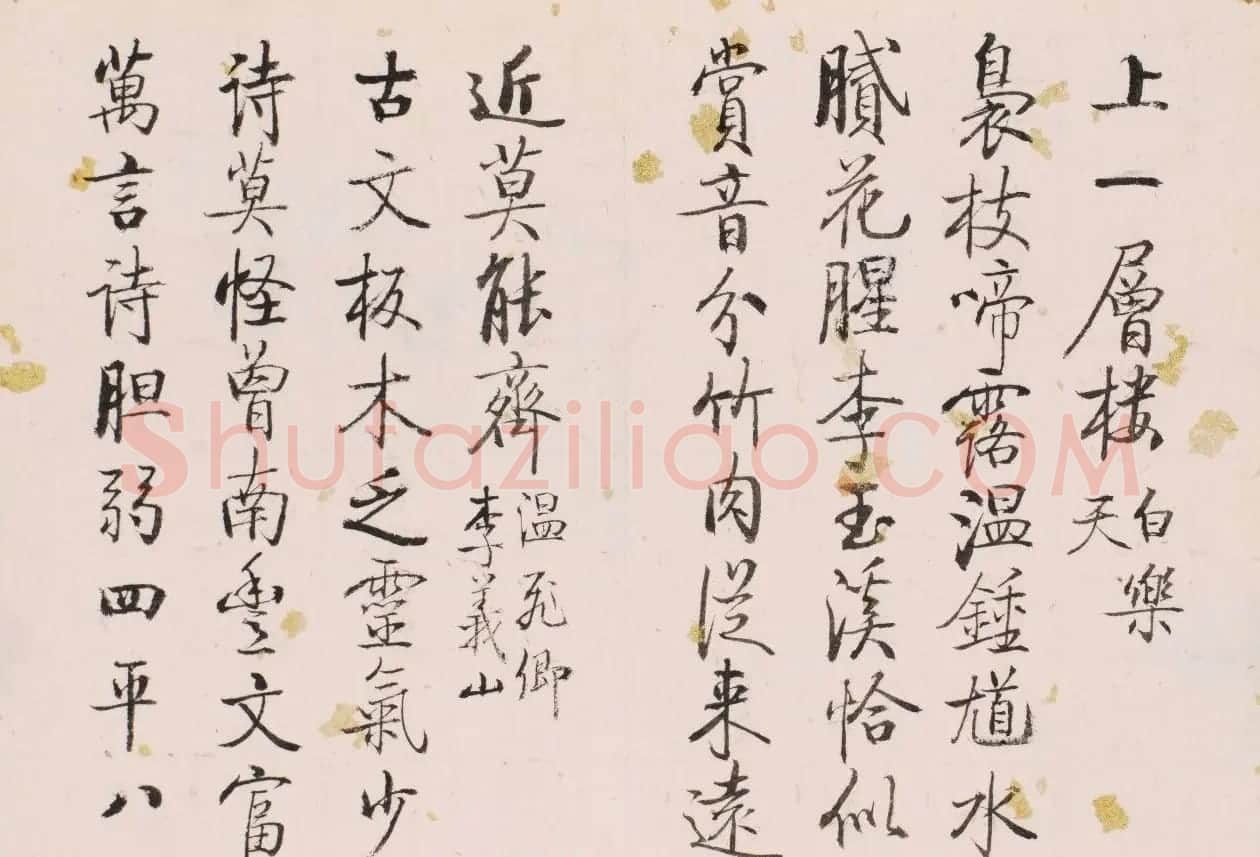 上一層樓白樂天
裊枝啼露温鍾馗水
膩花腥李玉溪恰似
賞音分竹肉從来遠
近莫能齊温飛卿李義山
古文板本乏靈氣少
詩莫怪曾南豐文富
萬言詩胆弱四平八
ShufaziliaoCOM